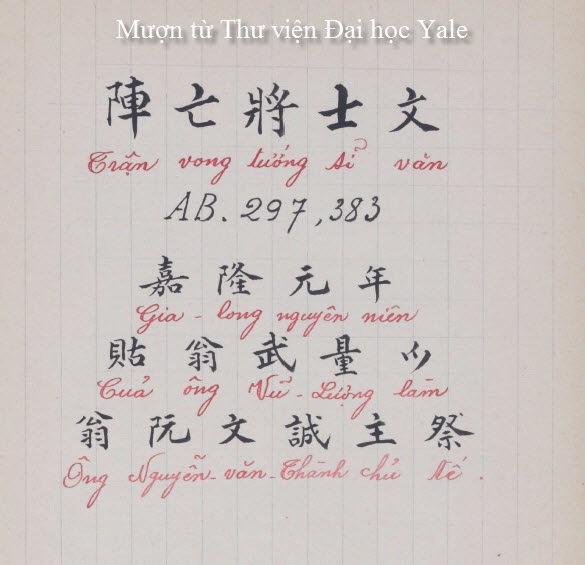 Mượn từ Thư viện Đại học Yale
陣亡將士文
Trận vong tướng sĩ văn
AB. 297, 383
嘉隆元年
Gia - long nguyên niên
貼翁武量
Cuả ông Vũ - Lượng làm
翁阮文誠主祭
Ông Nguyễn - văn - Thành chủ tế.